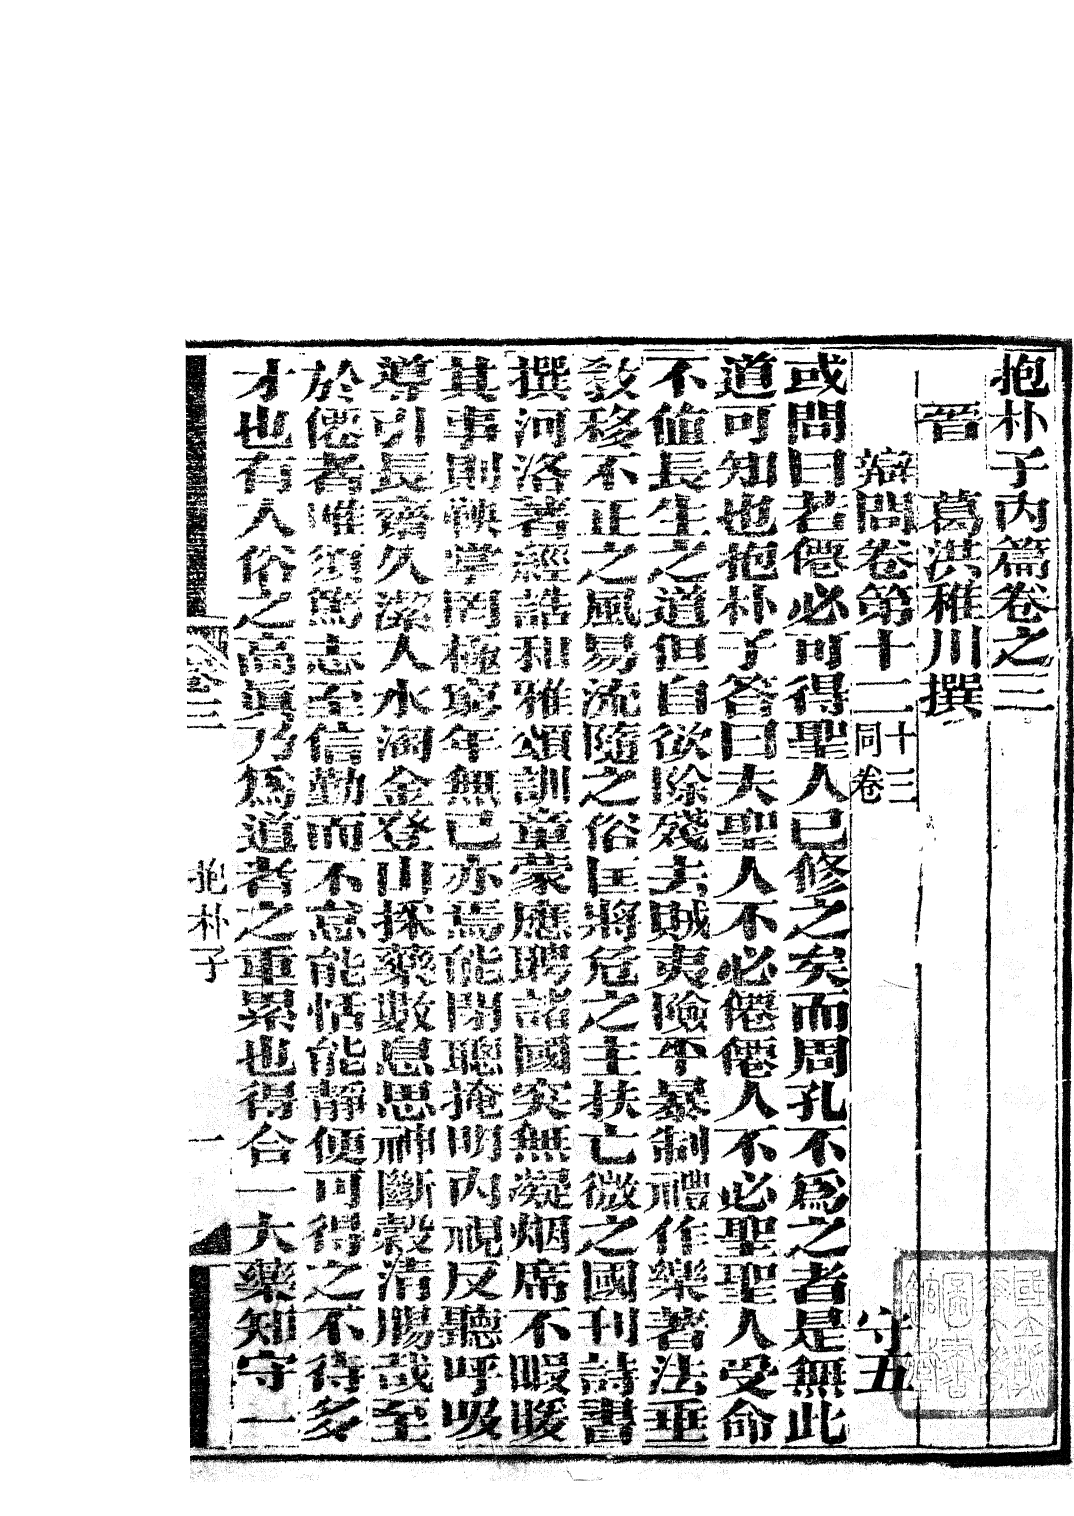 抱朴子内篇卷之三
晉　葛洪稚川撰
辯問卷第十二 十三同卷　守五
或問曰若僊必可得聖人已修之矣而周孔不爲之者是無此
道可知也抱朴子答曰夫聖人不必僊僊人不必聖聖人受命
不値長生之道但自欲除殘去賊夷險平暴制禮作樂著法垂
教移不正之風易流隨之俗匡將危之主扶亡微之國刊詩書
撰河洛著經誥和雅頌訓童蒙應聘諸國突無凝烟席不暇暖
其事則鞅掌罔極窮年無已亦焉能閉聰掩明内視反聽呼吸
導引長齋久潔入水淘金登山採藥數息思神斷穀清腸哉至
於僊者唯須篤志至信勤而不怠能恬能靜便可得之不待多
才也有入俗之高眞乃爲道者之重累也得合一大藥知守一
卷三
抱朴子
一